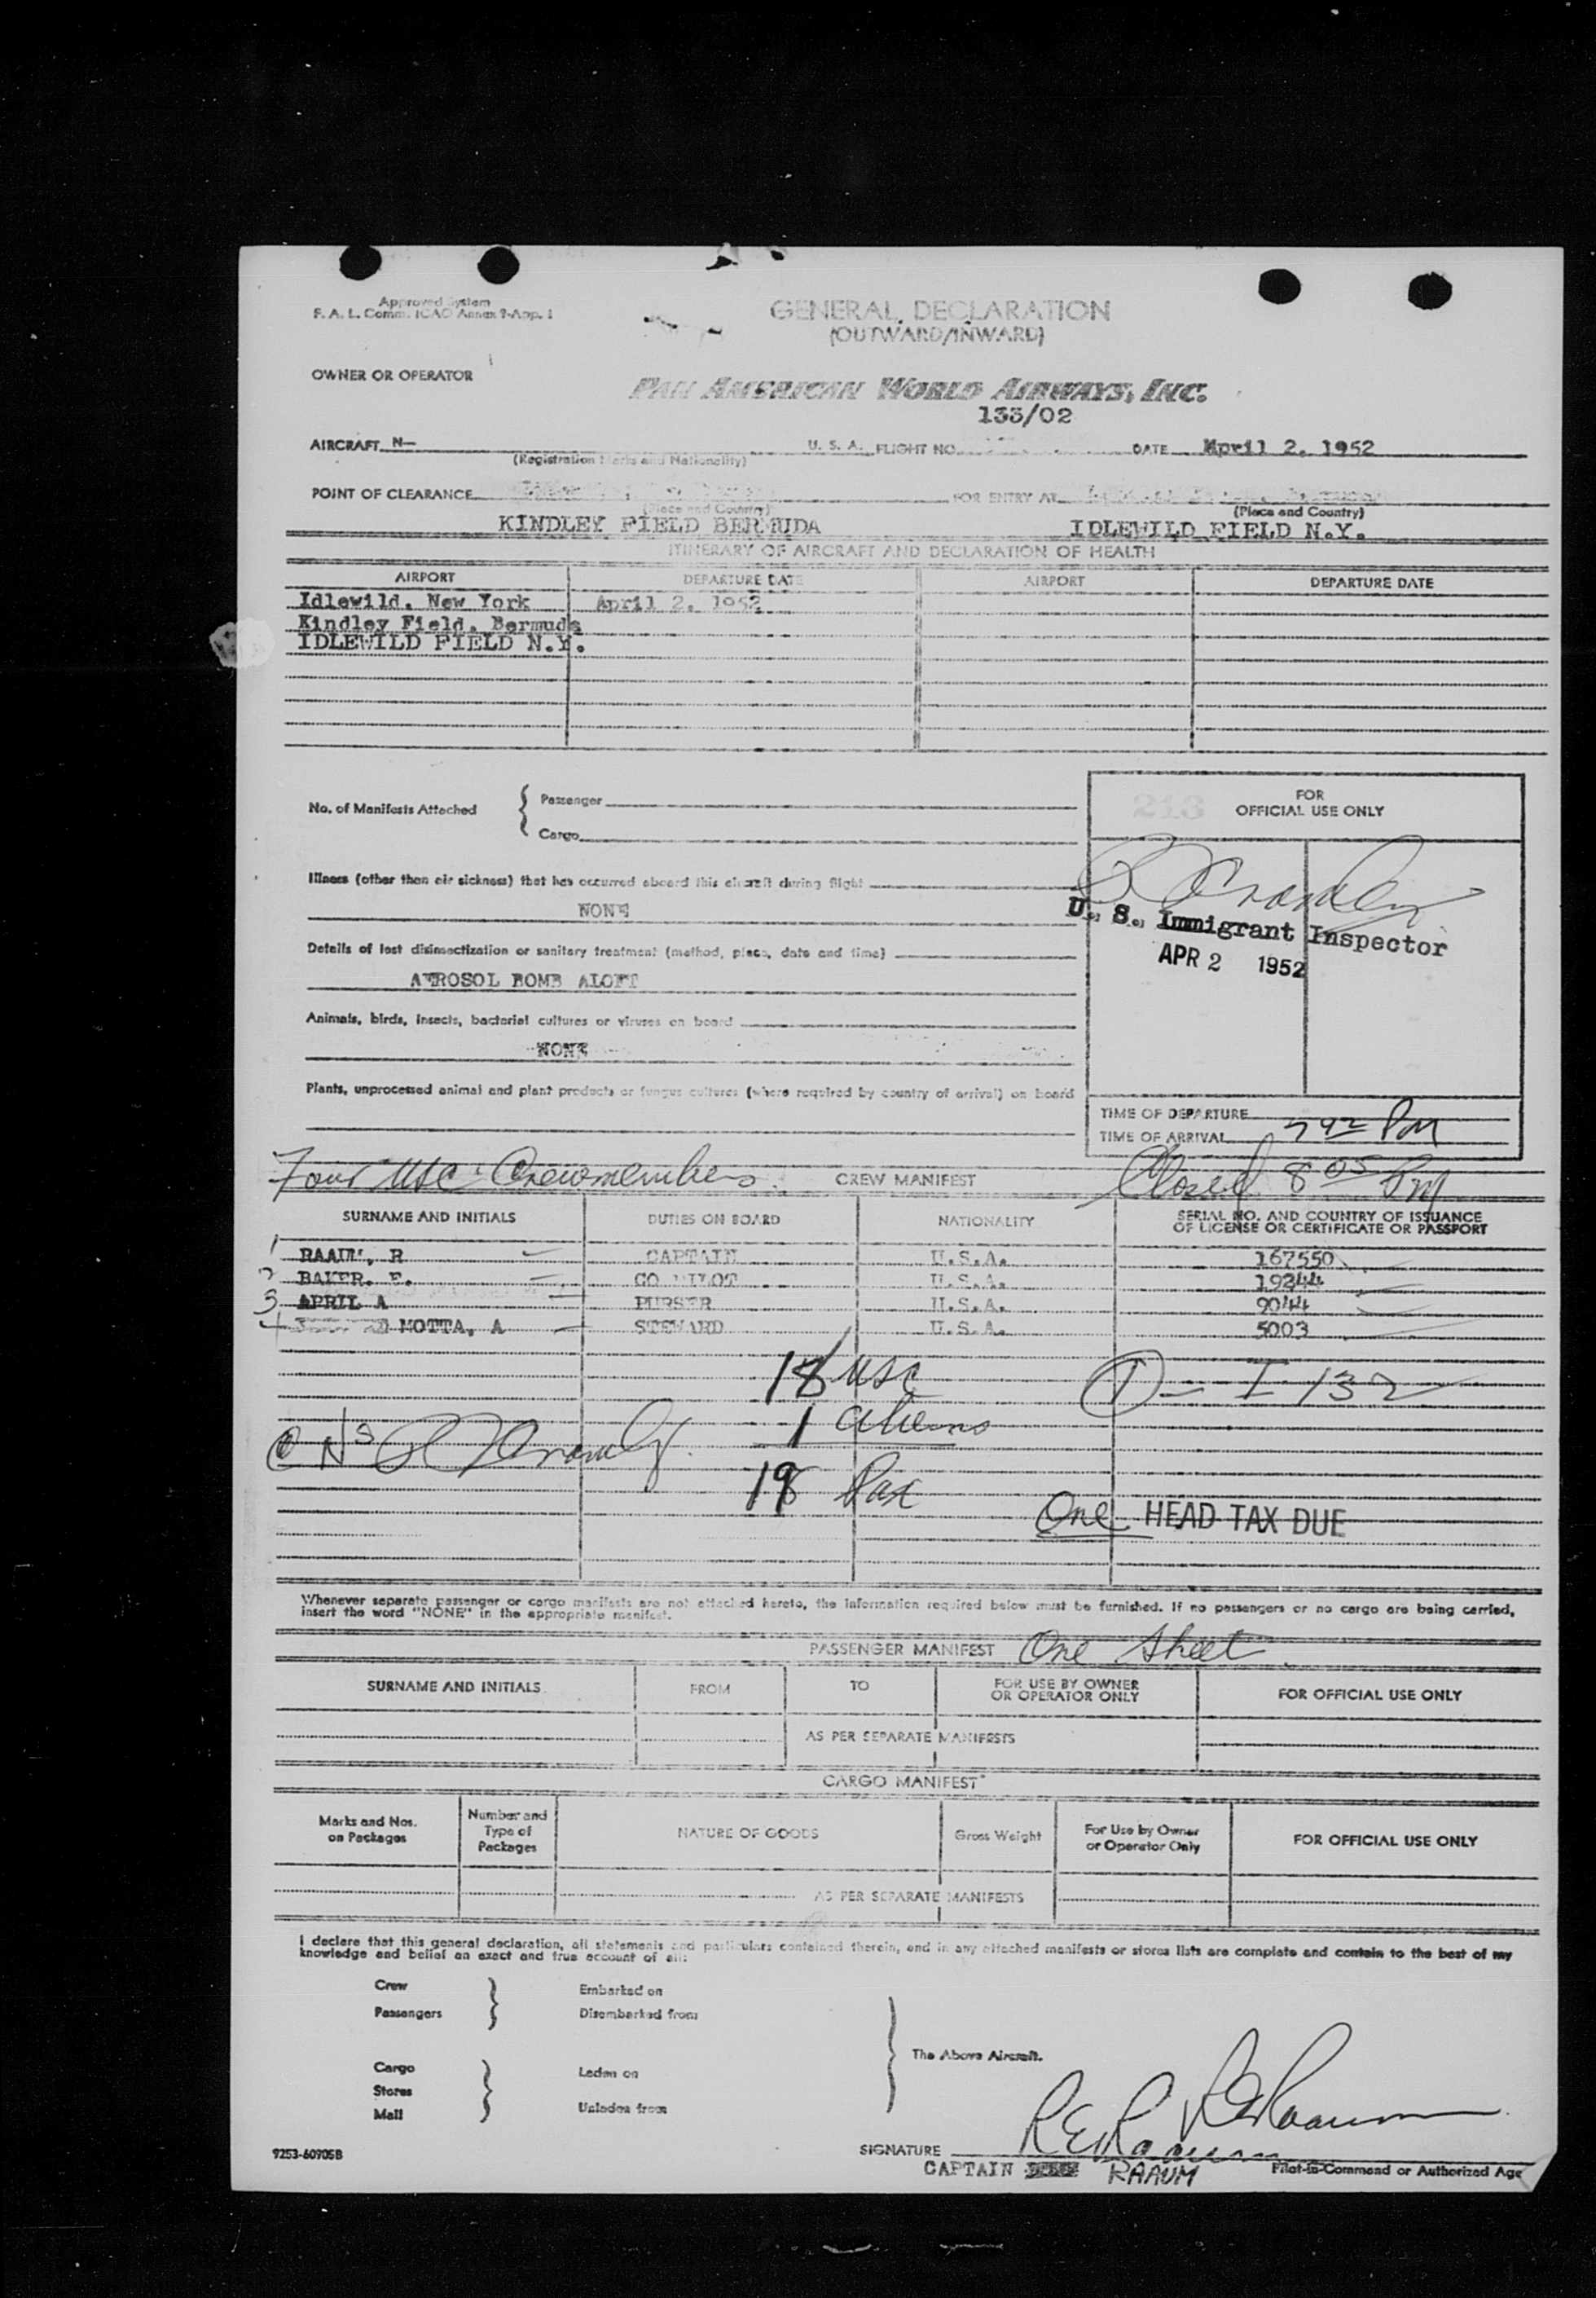 Approved System
F. A. L. Comm. ICAO Annex 9-App. 1
GENERAL DECLARATION
(OUTWARD/INWARD)
OWNER OR OPERATOR
PAN AMERICAN WORLD AIRWAYS, INC.
133/02
AIRCRAFT N— U. S. A. FLIGHT NO. DATE April 2, 1952
(Registration Marks and Nationality)
POINT OF CLEARANCE FOR ENTRY AT
(Place and Country) (Place and Country)
KINDLEY FIELD BERMUDA IDLEWILD FIELD N.Y.
ITINERARY OF AIRCRAFT AND DECLARATION OF HEALTH
AIRPORT DEPARTURE DATE AIRPORT DEPARTURE DATE
Idlewild, New York April 2, 1952
Kindley Field, Bermuda
IDLEWILD FIELD N.Y.
No. of Manifests Attached
Passenger
Cargo
213
FOR
OFFICIAL USE ONLY
Illness (other than air sickness) that has occurred aboard this aircraft during flight
NONE
U. S. Immigrant Inspector
APR 2 1952
Details of last disinsectization or sanitary treatment (method, place, date and time)
AEROSOL BOMB ALOFT
Animals, birds, insects, bacterial cultures or viruses on board
NONE
Plants, unprocessed animal and plant products or fungus cultures (where required by country of arrival) on board
TIME OF DEPARTURE
TIME OF ARRIVAL 742 PM
Four USC Crewmembers CREW MANIFEST Closed 805 PM
SURNAME AND INITIALS DUTIES ON BOARD NATIONALITY SERIAL NO. AND COUNTRY OF ISSUANCE
OF LICENSE OR CERTIFICATE OR PASSPORT
1 RAAUM, R CAPTAIN U.S.A. 167550
2 BAKER, E. CO PILOT U.S.A. 19244
3 APRIL A PURSER U.S.A. 9044
4 MOTTA, A STEWARD U.S.A. 5003
18 USC
1 - I 132
1 aliens
19 Pax
One HEAD TAX DUE
Whenever separate passenger or cargo manifests are not attached hereto, the information required below must be furnished. If no passengers or no cargo are being carried,
insert the word "NONE" in the appropriate manifest.
PASSENGER MANIFEST One Sheet
SURNAME AND INITIALS FROM TO FOR USE BY OWNER
OR OPERATOR ONLY FOR OFFICIAL USE ONLY
AS PER SEPARATE MANIFESTS
CARGO MANIFEST
Marks and Nos.
on Packages
Number and
Type of
Packages
NATURE OF GOODS
Gross Weight
For Use by Owner
or Operator Only
FOR OFFICIAL USE ONLY
AS PER SEPARATE MANIFESTS
I declare that this general declaration, all statements and particulars contained therein, and in any attached manifests or stores lists are complete and contain to the best of my
knowledge and belief an exact and true account of all:
Crew
Passengers
Embarked on
Disembarked from
The Above Aircraft.
Cargo
Stores
Mail
Laden on
Unladen from
RERaaum
RERaaum
9253-60905B
SIGNATURE
CAPTAIN RAAUM Pilot-in-Command or Authorized Age